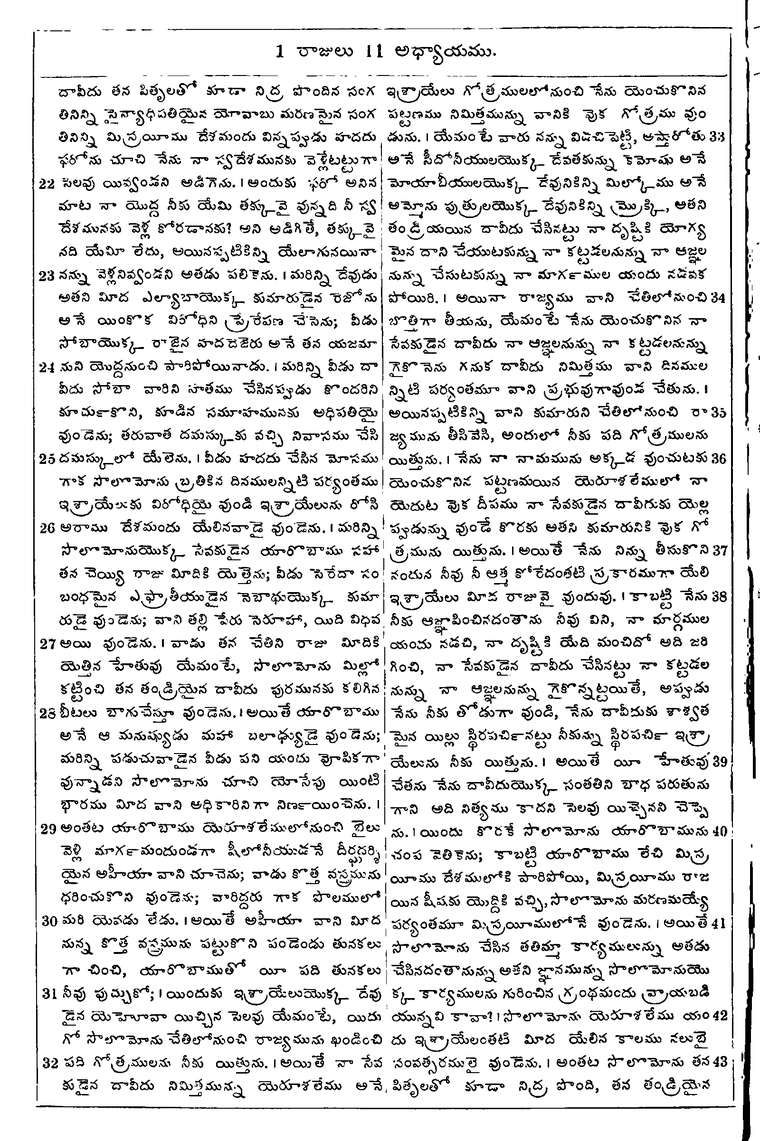 1 రాజులు 11 అధ్యాయము.
దావీదు తన పితృలతో కూడా నిద్ర పొందిన సంగ
తినిన్ని సైన్యాధిపతియైన యోవాబు మరణమైన సంగ
తినిన్ని మిస్రయీము దేశమందు విన్నప్పుడు హదదు
ఫరోను చూచి నేను నా స్వదేశమునకు వెళ్లేటట్టుగా
22 సెలవు యివ్వండని అడిగెను. । అందుకు ఫరో అనిన
మాట నా యొద్ద నీకు యేమి తక్కువై వున్నది నీ స్వ
దేశమునకు వెళ్ల కోరడానకు? అని అడిగితే, తక్కువై
నది యేమీ లేదు, అయినప్పటికిన్ని యేలాగునయినా
23 నన్ను వెళ్లనివ్వండని అతడు పలికెను. । మరిన్ని దేవుడు
అతని మీద ఎల్యాబాయొక్క కుమారుడైన రెజోను
అనే యింకొక విరోధిని ప్రేరేపణ చేసెను; వీడు
సోబాయొక్క రాజైన హదదజెరు అనే తన యజమా
24 నుని యొద్దనుంచి పారిపోయినాడు. । మరిన్ని వీడు దా
వీదు సోబా వారిని హతము చేసినప్పుడు కొందరిని
కూర్చుకొని, కూడిన సమూహమునకు అధిపతియై
వుండెను; తరువాత దమస్కుకు వచ్చి నివాసము చేసి
25 దమస్కులో యేలెను. । వీడు హదదు చేసిన మోసము
గాక సొలొమోను బ్రతికిన దినములన్నిటి పర్యంతము
ఇశ్రాయేలుకు విరోధియై వుండి ఇశ్రాయేలును రోసి
26 అరాము దేశమందు యేలినవాడై వుండెను. । మరిన్ని
సొలొమోనుయొక్క సేవకుడైన యారొబాము సహా
తన చెయ్యి రాజు మీదికి యెత్తెను; వీడు సెరేదా సం
బంధమైన ఎఫ్రాతీయుడైన నెబాథుయొక్క కుమా
రుడై వుండెను; వాని తల్లి పేరు సెరూహా, యిది విధవ
27 అయి వుండెను. । వాడు తన చేతిని రాజు మీదికి
యెత్తిన హేతువు యేమంటే, సొలొమోను మిల్లో
కట్టించి తన తండ్రియైన దావీదు పురమునకు కలిగిన
28 బీటలు బాగుచేస్తూ వుండెను. । అయితే యారొబాము
అనే ఆ మనుష్యుడు మహా బలాఢ్యుడై వుండెను;
మరిన్ని పడుచువాడైన వీడు పని యందు వైాపికగా
వున్నాడని సొలొమోను చూచి యోసేపు యింటి
భారము మీద వాని అధికారినిగా నిర్ణయించెను. ।
29 అంతట యారొబాము యెరూశలేములోనుంచి బైలు
వెళ్లి మార్గమందుండగా షీలోనీయుడనే దీర్ఘదర్శి
యైన అహీయా వాని చూచెను; వాడు కొత్త వస్త్రమును
ధరించుకొని వుండెను; వారిద్దరు గాక పొలములో
30 మరి యెవడు లేడు. । అయితే అహీయా వాని మీద
నున్న కొత్త వస్త్రమును పట్టుకొని పండెండు తునకలు
గా చించి, యారొబాముతో యీ పది తునకలు
31 నీవు పుచ్చుకో; । యిందుకు ఇశ్రాయేలుయొక్క దేవు
డైన యెహోవా యిచ్చిన సెలవు యేమంటే, యిదు
గో సొలొమోను చేతిలోనుంచి రాజ్యమును ఖండించి
32 పది గోత్రములను నీకు యిత్తును. । అయితే నా సేవ
కుడైన దావీదు నిమిత్తమున్న యెరూశలేము అనే
ఇశ్రాయేలు గోత్రములలోనుంచి నేను యెంచుకొనిన
పట్టణము నిమిత్తమున్ను వానికి వొక గోత్రము వుం
డును. । యేమంటే వారు నన్ను విడిచిపెట్టి, అష్తారోతు 33
అనే సీదోనీయులయొక్క దేవతకున్ను కెమోషు అనే
మోయాబీయులయొక్క దేవునికిన్ని మిల్కోము అనే
అమ్మోను పుత్రులయొక్క దేవునికిన్ని మ్రొక్కి, అతని
తండ్రియయిన దావీదు చేసినట్టు నా దృష్టికి యోగ్య
మైన దాని చేయుటకున్ను నా కట్టడలనున్ను నా ఆజ్ఞల
నున్ను చేసుటకున్ను నా మార్గముల యందు నడవక
పోయిరి. । అయినా రాజ్యము వాని చేతిలోనుంచి 34
బొత్తిగా తీయను, యేమంటే నేను యెంచుకొనిన నా
సేవకుడైన దావీదు నా ఆజ్ఞలనున్ను నా కట్టడలనున్ను
గైకొనెను గనుక దావీదు నిమిత్తము వాని దినముల
న్నిటి పర్యంతమూ వాని ప్రభువుగావుండ చేతును. ।
అయినప్పటికిన్ని వాని కుమారుని చేతిలోనుంచి రా 35
జ్యమును తీసివేసి, అందులో నీకు పది గోత్రములను
యిత్తును. । నేను నా నామమును అక్కడ వుంచుటకు 36
యెంచుకొనిన పట్టణమయిన యెరూశలేములో నా
యెదుట వొక దీపము నా సేవకుడైన దావీదుకు యెల్ల
ప్పుడున్ను వుండే కొరకు అతని కుమారునికి వొక గో
త్రమును యిత్తును. । అయితే నేను నిన్ను తీసుకొని 37
నందున నీవు నీ ఆత్మ కోరేదంతటి ప్రకారముగా యేలి
ఇశ్రాయేలు మీద రాజువై వుందువు. । కాబట్టి నేను 38
నీకు ఆజ్ఞాపించినదంతాను నీవు విని, నా మార్గముల
యందు నడచి, నా దృష్టికి యేది మంచిదో అది జరి
గించి, నా సేవకుడైన దావీదు చేసినట్టు నా కట్టడల
నున్ను నా ఆజ్ఞలనున్ను గైకొన్నట్టయితే, అప్పుడు
నేను నీకు తోడుగా వుండి, నేను దావీదుకు శాశ్వత
మైన యిల్లు స్థిరపర్చినట్టు నీకున్ను స్థిరపర్చి ఇశ్రా
యేలును నీకు యిత్తును. । అయితే యీ హేతువు 39
చేతను నేను దావీదుయొక్క సంతతిని బాధ పరుతును
గాని అది నిత్యము కాదని సెలవు యిచ్చెనని చెప్పె
ను. । యిందు కొరకే సొలొమోను యారొబామును 40
చంప వెతికెను; కాబట్టి యారొబాము లేచి మిస్ర
యీము దేశములోకి పారిపోయి, మిస్రయీము రాజ
యిన షీషకు యొద్దికి వచ్చి, సొలొమోను మరణమయ్యే
పర్యంతమూ మిస్రయీములోనే వుండెను. । అయితే 41
సొలొమోను చేసిన తతిమ్మా కార్యములున్ను అతడు
చేసినదంతానున్ను అతని జ్ఞానమున్ను సొలొమోనుయొ
క్క కార్యములను గురించిన గ్రంథమందు వ్రాయబడి
యున్నవి కావా? । సొలొమోను యెరూశలేము యం 42
దు ఇశ్రాయేలంతటి మీద యేలిన కాలము నలుభై
సంవత్సరములై వుండెను. । అంతట సొలొమోను తన 43
పితృలతో కూడా నిద్ర పొంది, తన తండ్రియైన